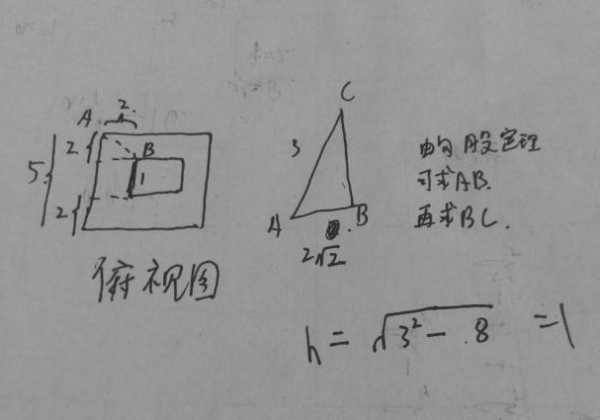 2
A
2
B
5
1
2
俯视图
C
3
A
B
2√2
由勾股定理
可求AB.
再求BC.
h = √3² - 8 = 1